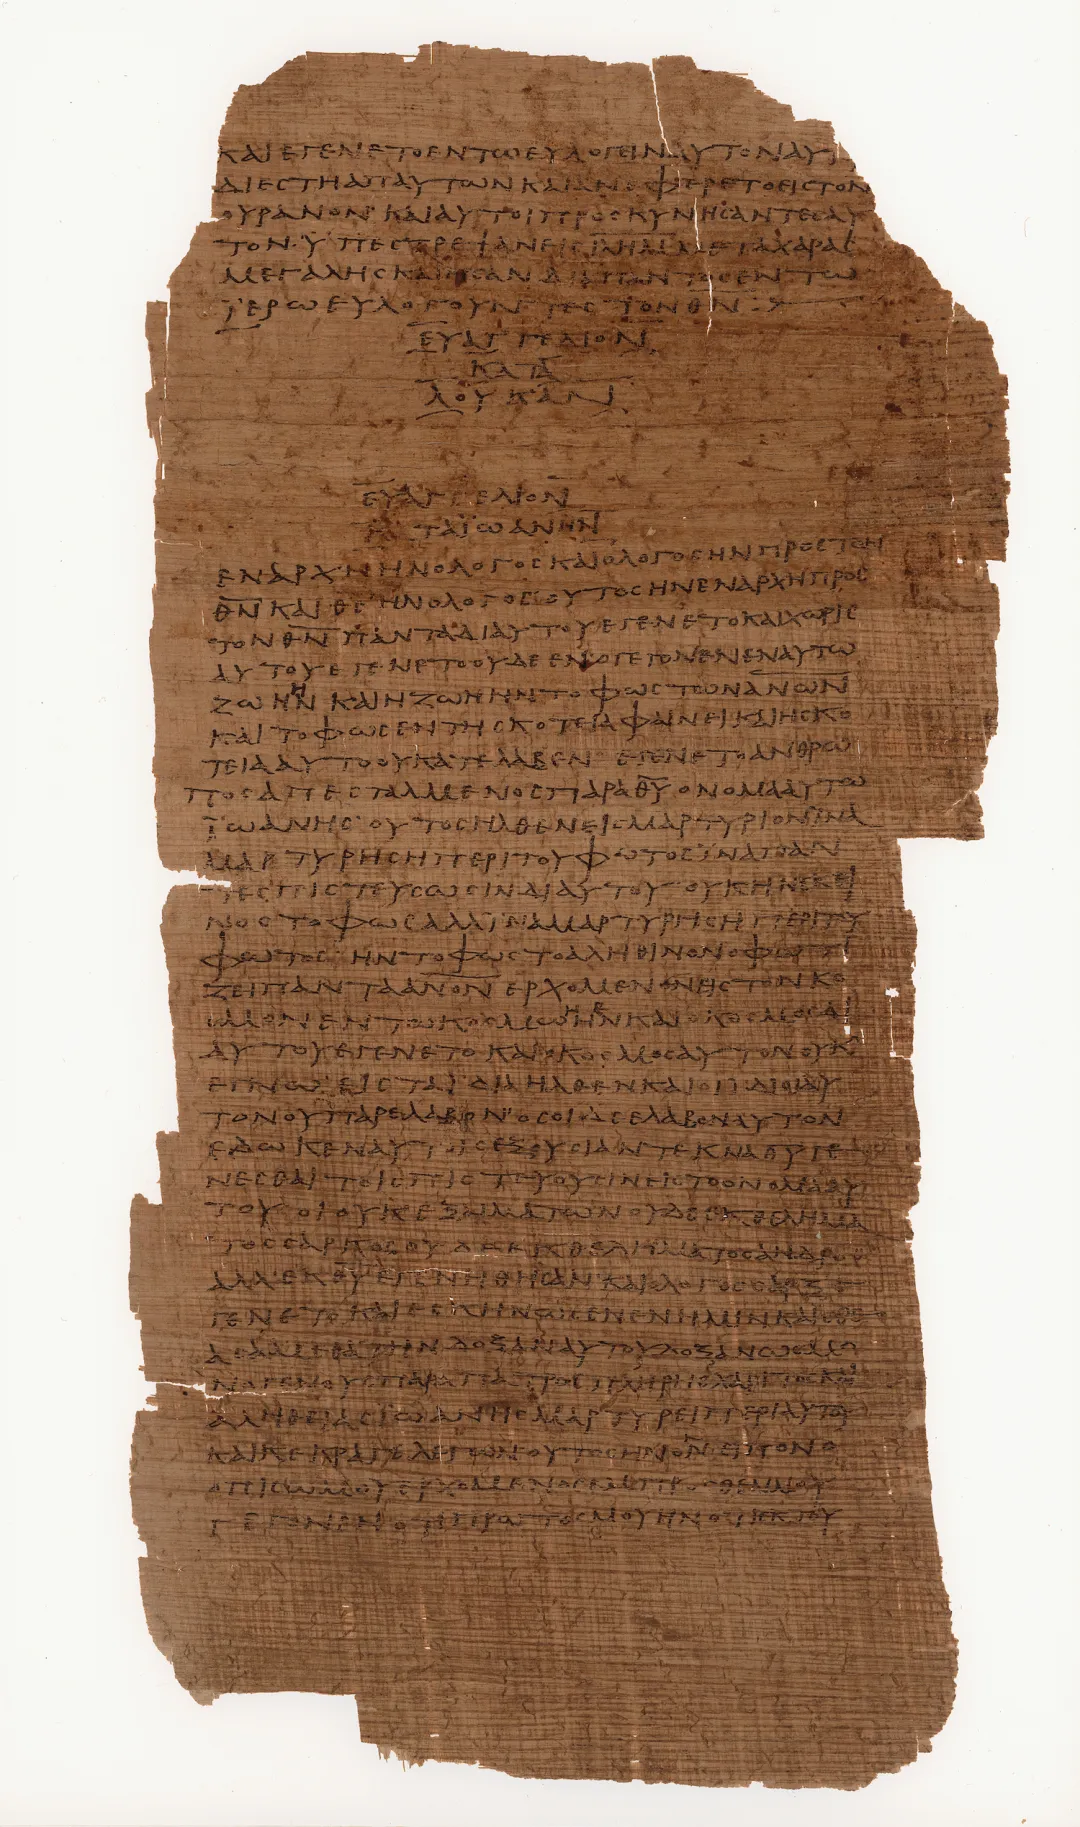 ΚΑΙ ΕΓΕΝΕΤΟ ΕΝ ΤΩ ΕΥΛΟΓΕΙΝ ΑΥΤΟΝ ΑΥΤ
ΔΙΕΣΤΗ ΑΠ ΑΥΤΩΝ ΚΑΙ ΑΝΕΦΕΡΕΤΟ ΕΙΣ ΤΟΝ
ΟΥΡΑΝΟΝ ΚΑΙ ΑΥΤΟΙ ΠΡΟΣΚΥΝΗΣΑΝΤΕΣ ΑΥ
ΤΟΝ ΫΠΕΣΤΡΕΨΑΝ ΕΙΣ ΙΛΗΜ ΜΕΤΑ ΧΑΡΑΣ
ΜΕΓΑΛΗΣ ΚΑΙ ΗΣΑΝ ΔΙΑ ΠΑΝΤΟΣ ΕΝ ΤΩ
ΪΕΡΩ ΕΥΛΟΓΟΥΝΤΕΣ ΤΟΝ Θ̅Ν̅
ΕΥΑΓΓΕΛΙΟΝ
ΚΑΤΑ
ΛΟΥΚΑΝ
ΕΥΑΓΓΕΛΙΟΝ
ΚΑΤΑ ΪΩΑΝΗΝ
ΕΝ ΑΡΧΗ ΗΝ Ο ΛΟΓΟΣ ΚΑΙ Ο ΛΟΓΟΣ ΗΝ ΠΡΟΣ ΤΟΝ
Θ̅Ν̅ ΚΑΙ Θ̅Σ̅ ΗΝ Ο ΛΟΓΟΣ ΟΥΤΟΣ ΗΝ ΕΝ ΑΡΧΗ ΠΡΟΣ
ΤΟΝ Θ̅Ν̅ ΠΑΝΤΑ ΔΙ ΑΥΤΟΥ ΕΓΕΝΕΤΟ ΚΑΙ ΧΩΡΙΣ
ΑΥΤΟΥ ΕΓΕΝΕΤΟ ΟΥΔΕ ΕΝ Ο ΓΕΓΟΝΕΝ ΕΝ ΑΥΤΩ
ΖΩΗ ΗΝ ΚΑΙ Η ΖΩΗ ΗΝ ΤΟ ΦΩΣ ΤΩΝ Α̅Ν̅Ω̅Ν̅
ΚΑΙ ΤΟ ΦΩΣ ΕΝ ΤΗ ΣΚΟΤΕΙΑ ΦΑΙΝΕΙ ΚΑΙ Η ΣΚΟ
ΤΕΙΑ ΑΥΤΟ ΟΥ ΚΑΤΕΛΑΒΕΝ ΕΓΕΝΕΤΟ ΑΝΘΡΩ
ΠΟΣ ΑΠΕΣΤΑΛΜΕΝΟΣ ΠΑΡΑ Θ̅Υ̅ ΟΝΟΜΑ ΑΥΤΩ
ΪΩΑΝΗΣ ΟΥΤΟΣ ΗΛΘΕΝ ΕΙΣ ΜΑΡΤΥΡΙΟΝ ΪΝΑ
ΜΑΡΤΥΡΗΣΗ ΠΕΡΙ ΤΟΥ ΦΩΤΟΣ ΪΝΑ ΠΑΝ
ΤΕΣ ΠΙΣΤΕΥΣΩΣΙΝ ΔΙ ΑΥΤΟΥ ΟΥΚ ΗΝ ΕΚΕΙ
ΝΟΣ ΤΟ ΦΩΣ ΑΛΛ ΪΝΑ ΜΑΡΤΥΡΗΣΗ ΠΕΡΙ ΤΟΥ
ΦΩΤΟΣ ΗΝ ΤΟ ΦΩΣ ΤΟ ΑΛΗΘΙΝΟΝ Ο ΦΩΤΙ
ΖΕΙ ΠΑΝΤΑ Α̅Ν̅Ο̅Ν̅ ΕΡΧΟΜΕΝΟΝ ΕΙΣ ΤΟΝ ΚΟ
ΣΜΟΝ ΕΝ ΤΩ ΚΟΣΜΩ ΗΝ ΚΑΙ Ο ΚΟΣΜΟΣ ΔΙ
ΑΥΤΟΥ ΕΓΕΝΕΤΟ ΚΑΙ Ο ΚΟΣΜΟΣ ΑΥΤΟΝ ΟΥΚ
ΕΓΝΩ ΕΙΣ ΤΑ ΪΔΙΑ ΗΛΘΕΝ ΚΑΙ ΟΙ ΪΔΙΟΙ ΑΥ
ΤΟΝ ΟΥ ΠΑΡΕΛΑΒΟΝ ΟΣΟΙ ΔΕ ΕΛΑΒΟΝ ΑΥΤΟΝ
ΕΔΩΚΕΝ ΑΥΤΟΙΣ ΕΞΟΥΣΙΑΝ ΤΕΚΝΑ Θ̅Υ̅ ΓΕ
ΝΕΣΘΑΙ ΤΟΙΣ ΠΙΣΤΕΥΟΥΣΙΝ ΕΙΣ ΤΟ ΟΝΟΜΑ ΑΥ
ΤΟΥ ΟΙ ΟΥΚ ΕΞ ΑΙΜΑΤΩΝ ΟΥΔΕ ΕΚ ΘΕΛΗΜΑ
ΤΟΣ ΣΑΡΚΟΣ ΟΥΔΕ ΕΚ ΘΕΛΗΜΑΤΟΣ ΑΝΔΡΟΣ
ΑΛΛ ΕΚ Θ̅Υ̅ ΕΓΕΝΗΘΗΣΑΝ ΚΑΙ Ο ΛΟΓΟΣ ΣΑΡΞ Ε
ΓΕΝΕΤΟ ΚΑΙ ΕΣΚΗΝΩΣΕΝ ΕΝ ΗΜΙΝ ΚΑΙ ΕΘΕ
ΑΣΑΜΕΘΑ ΤΗΝ ΔΟΞΑΝ ΑΥΤΟΥ ΔΟΞΑΝ ΩΣ ΜΟ
ΝΟΓΕΝΟΥΣ ΠΑΡΑ Π̅Ρ̅Σ̅ ΠΛΗΡΗΣ ΧΑΡΙΤΟΣ ΚΑΙ
ΑΛΗΘΕΙΑΣ ΪΩΑΝΗΣ ΜΑΡΤΥΡΕΙ ΠΕΡΙ ΑΥΤΟΥ
ΚΑΙ ΚΕΚΡΑΓΕ ΛΕΓΩΝ ΟΥΤΟΣ ΗΝ ΟΝ ΕΙΠΟΝ Ο
ΟΠΙΣΩ ΜΟΥ ΕΡΧΟΜΕΝΟΣ ΕΜΠΡΟΣΘΕΝ ΜΟΥ
ΓΕΓΟΝΕΝ ΟΤΙ ΠΡΩΤΟΣ ΜΟΥ ΗΝ ΟΤΙ ΕΚ ΤΟΥ